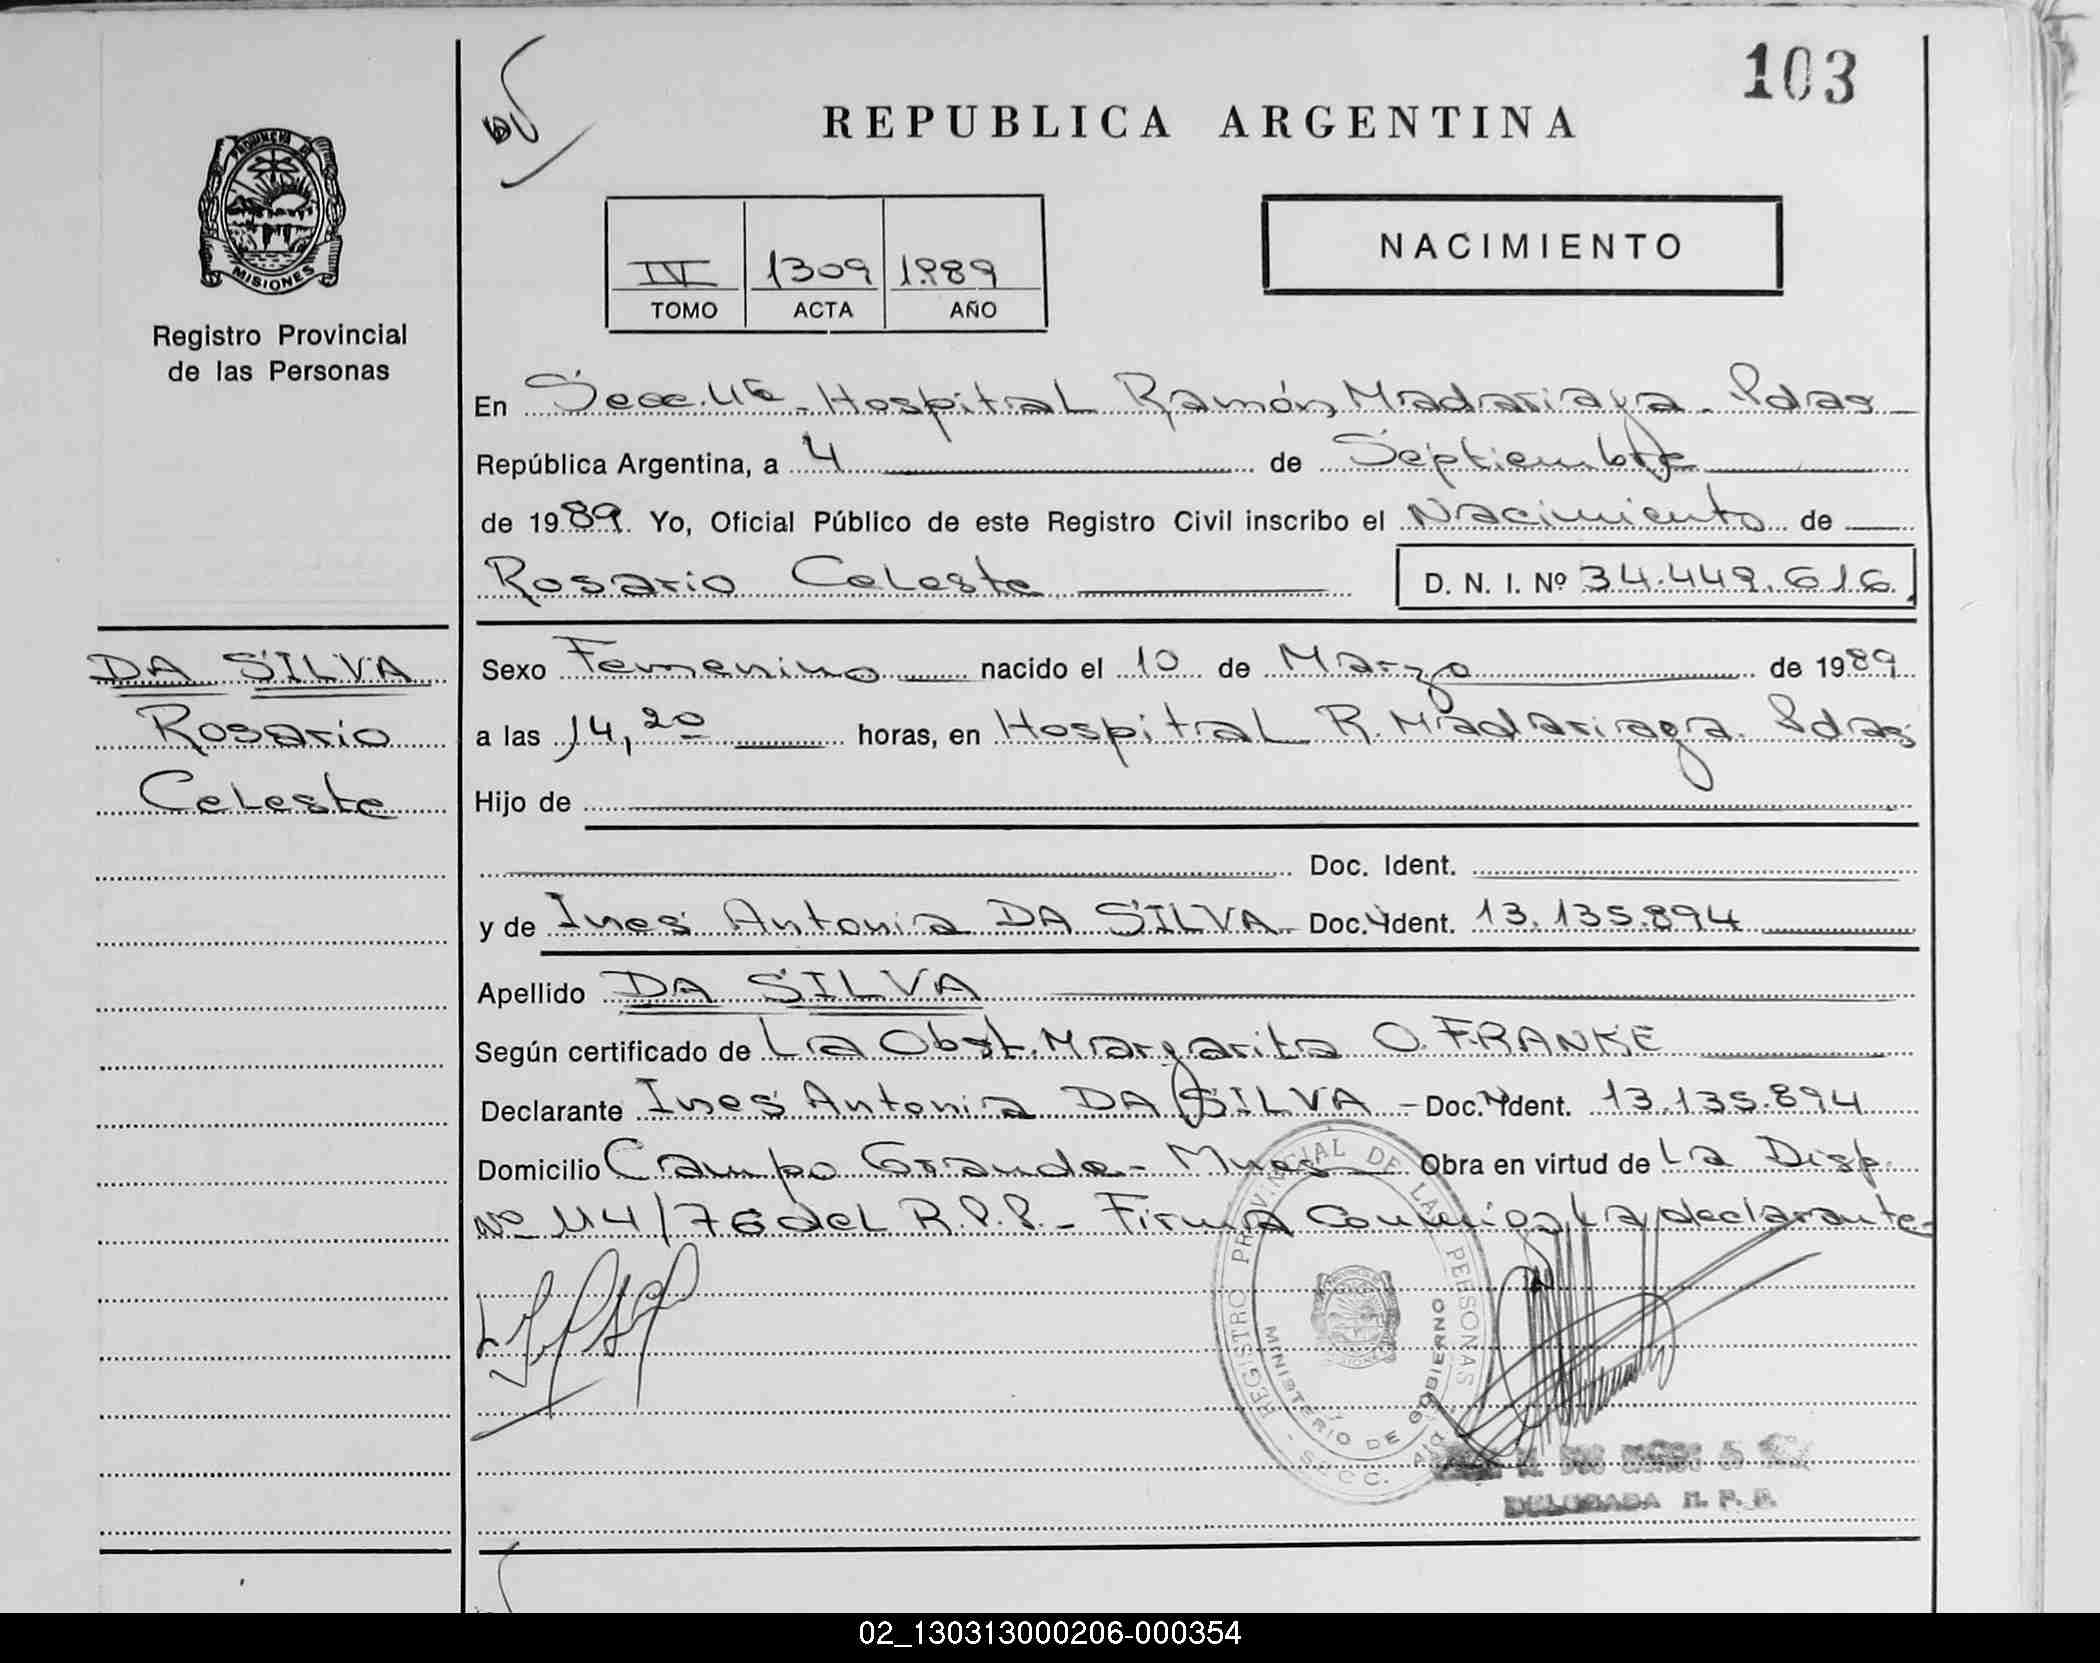 103
REPUBLICA ARGENTINA
NACIMIENTO
IV 1309 1989
TOMO ACTA AÑO
MISIONES
Registro Provincial
de las Personas
En Secc. 4ª - Hospital Ramón Madariaga - Pdas
República Argentina, a 4 de Septiembre
de 1989. Yo, Oficial Público de este Registro Civil inscribo el Nacimiento de
Rosario Celeste D. N. I. Nº 34.449.616
DA SILVA
Rosario
Celeste
Sexo Femenino nacido el 10 de Marzo de 1989
a las 14,20 horas, en Hospital R. Madariaga. Pdas
Hijo de
Doc. Ident.
y de Ines Antonia DA SILVA Doc. Ident. 13.135.894
Apellido DA SILVA
Según certificado de La Obst. Margarita O. FRANKE
Declarante Ines Antonia DA SILVA - Doc. Ident. 13.135.894
Domicilio Campo Grande - Mnes Obra en virtud de La Disp.
Nº 114/76 del R.P.P. - Firma Conmigo La declarante -
REGISTRO PROVINCIAL DE LAS PERSONAS
MINISTERIO DE GOBIERNO
SECC.
DELEGADA R. P. P.
02_130313000206-000354